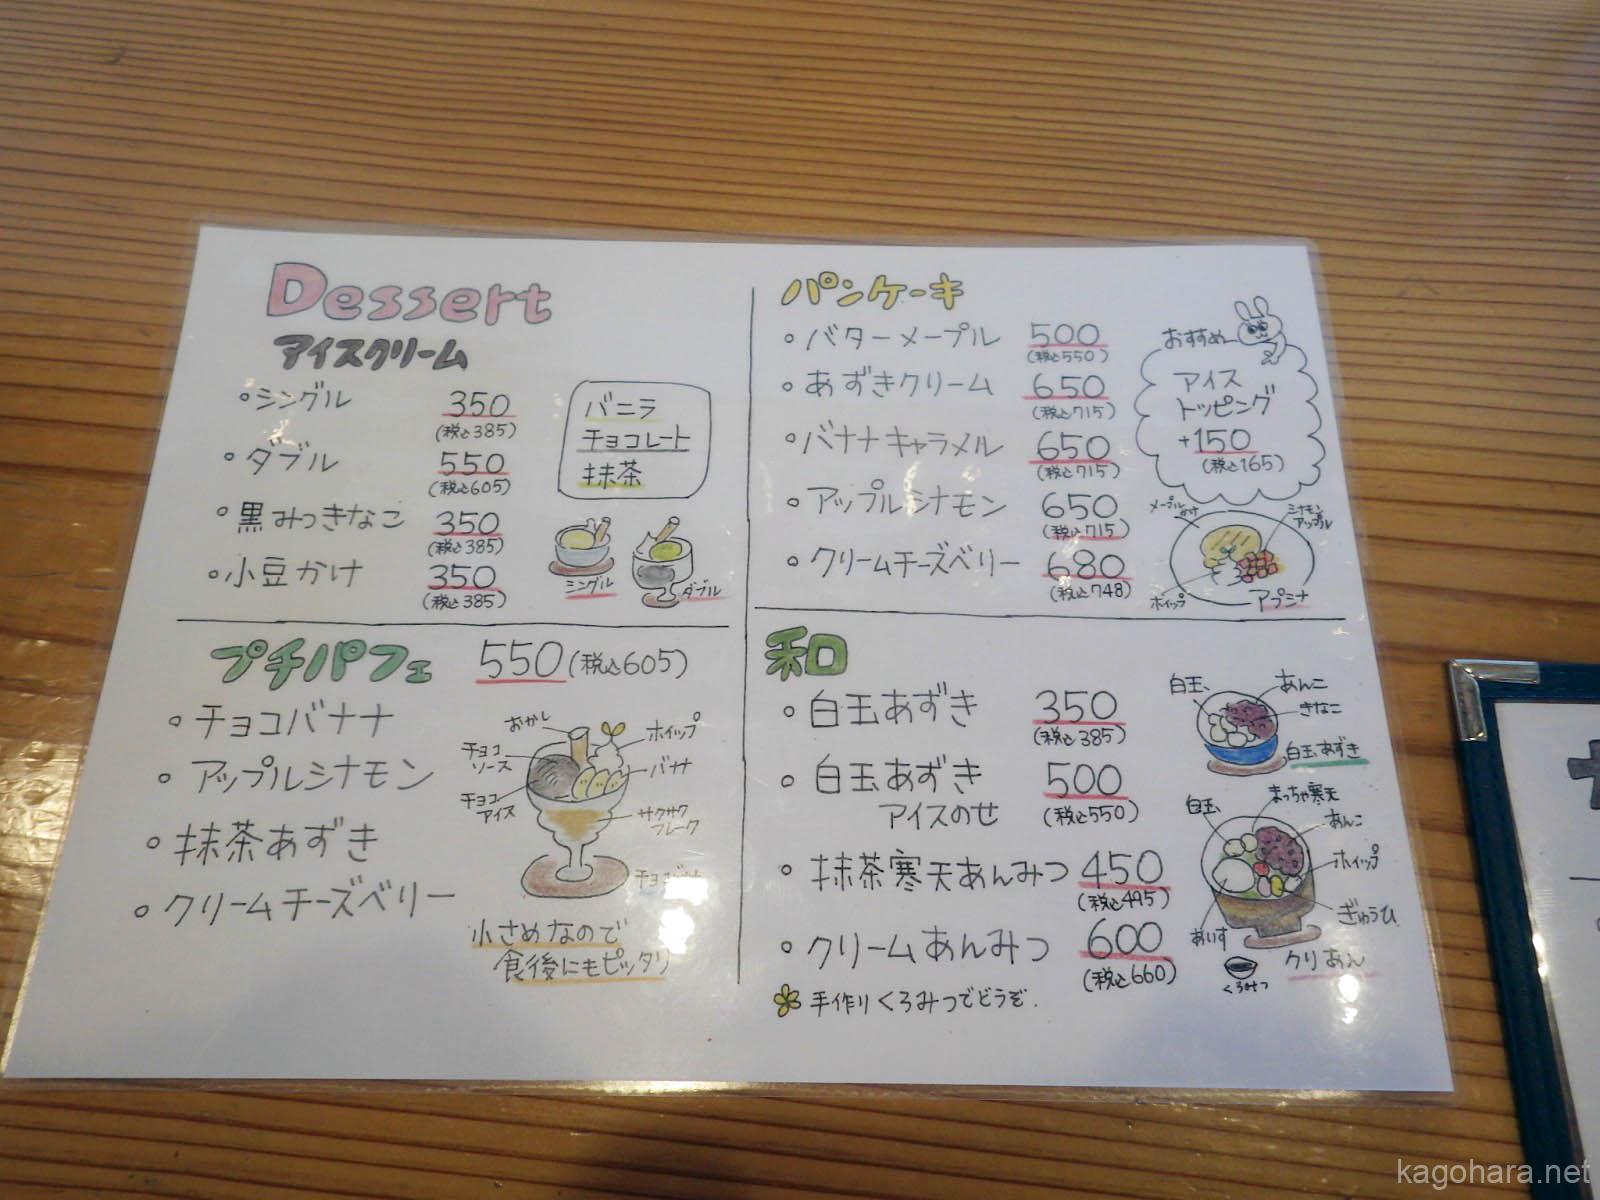 Dessert
アイスクリーム
・シングル 350
(税込385)
・ダブル 550
(税込605)
・黒みつきなこ 350
(税込385)
・小豆かけ 350
(税込385)
バニラ
チョコレート
抹茶
シングル
ダブル
プチパフェ 550(税込605)
・チョコバナナ
・アップルシナモン
・抹茶あずき
・クリームチーズベリー
おかし
ホイップ
チョコ
ソース
バナナ
チョコ
アイス
サクサク
フレーク
小さめなので
食後にもピッタリ
パンケーキ
・バターメープル 500
(税込550)
・あずきクリーム 650
(税込715)
・バナナキャラメル 650
(税込715)
・アップルシナモン 650
(税込715)
・クリームチーズベリー 680
(税込748)
おすすめ
アイス
トッピング
+150
(税込165)
メープル
かけ
シナモン
アップル
ホイップ
アプシナ
和
・白玉あずき 350
(税込385)
・白玉あずき 500
アイスのせ (税込550)
・抹茶寒天あんみつ 450
(税込495)
・クリームあんみつ 600
(税込660)
手作りくろみつでどうぞ.
白玉
あんこ
きなこ
白玉あずき
白玉
まっちゃ寒天
あんこ
ホイップ
ぎゅうひ
あいす
クリあん
くろみつ
kagohara.net